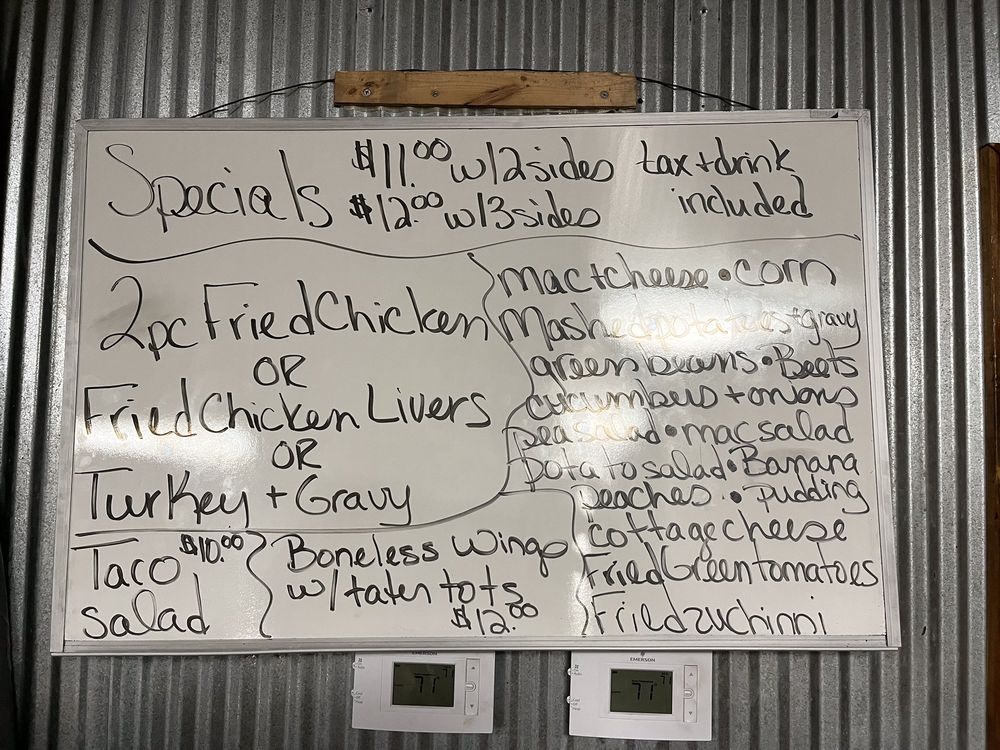 Specials $11.00 w/2 sides tax + drink
$12.00 w/3 sides included
2pc Fried Chicken
OR
Fried Chicken Livers
OR
Turkey + Gravy
mac+cheese • corn
Mashed potatoes + gravy
green beans • Beets
cucumbers + onions
pea salad • mac salad
potato salad • Banana
peaches • pudding
cottage cheese
Fried Green tomatoes
Fried zuchinni
Taco $10.00
Salad
Boneless wings
w/ tater tots
$12.00
EMERSON
71
EMERSON
71